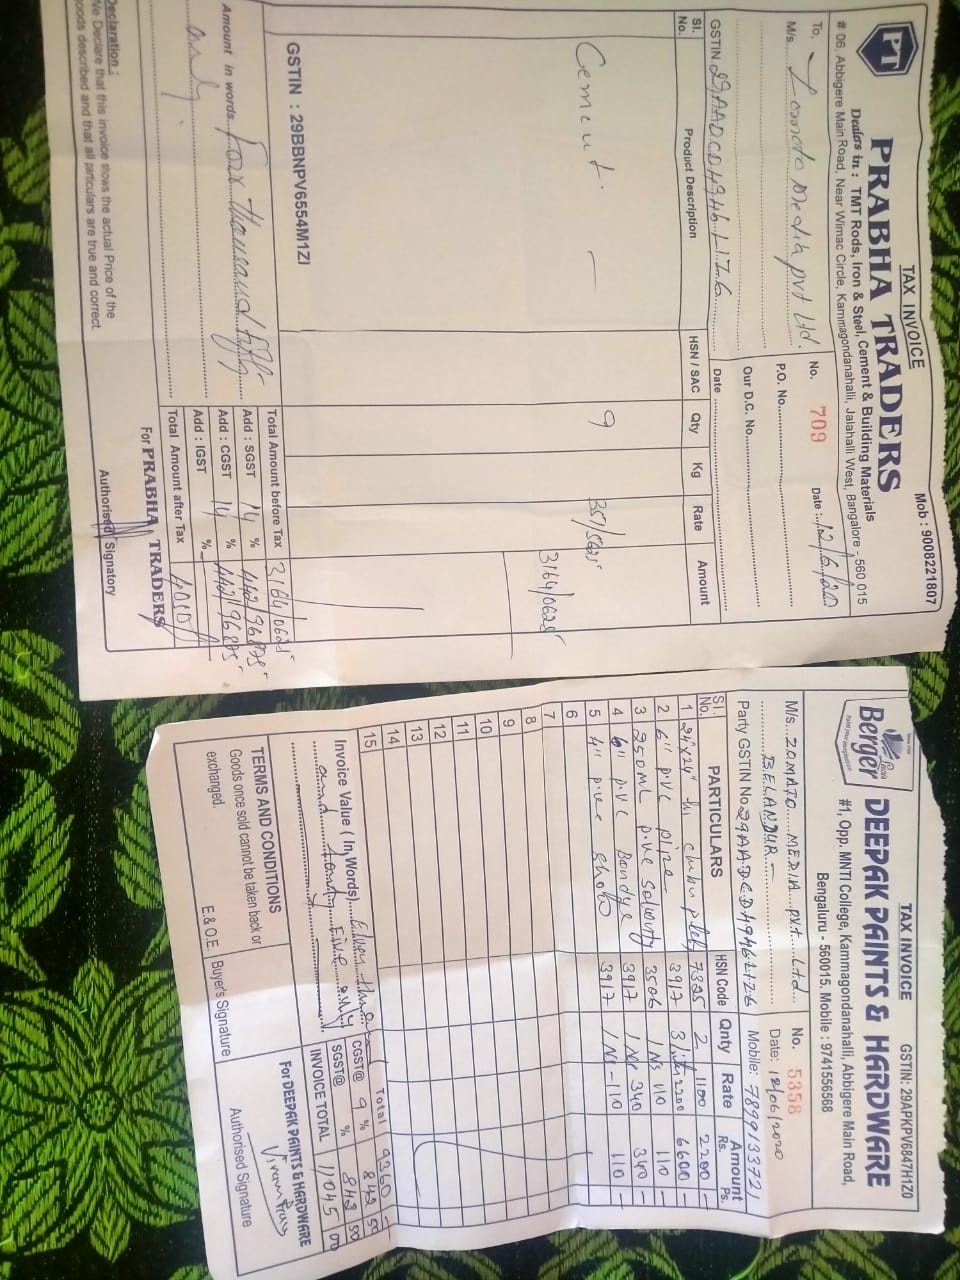 TAX INVOICE
Mob : 9008221807
PT
PRABHA TRADERS
Dealers in : TMT Rods, Iron & Steel, Cement & Building Materials
# 06, Abbigere Main Road, Near Wimac Circle, Kammagondanahalli, Jalahalli West, Bangalore - 560 015
To,
No. 709 Date : 12/6/20
M/s. Zomato Media pvt Ltd.
P.O. No.
Our D.C. No.
GSTIN 29AADCD4946L1Z6 Date
Sl. No. Product Description HSN / SAC Qty Kg Rate Amount
Cement. — 9 351/5625 3164/0625
GSTIN : 29BBNPV6554M1ZI
Total Amount before Tax 3164/0625
Amount in words Four thousand fifty
Add : SGST 14 % 442/96875
only.
Add : CGST 14 % 442/96875
Add : IGST %
Total Amount after Tax 4050/-
Declaration :
We Declare that this invoice shows the actual Price of the
goods described and that all particulars are true and correct.
For PRABHA TRADERS
Authorised Signatory
TAX INVOICE
GSTIN: 29APKPV6847H1Z0
Berger
DEEPAK PAINTS & HARDWARE
#1, Opp. MNTI College, Kammagondanahalli, Abbigere Main Road,
Bengaluru - 560015. Mobile : 9741556568
M/s. ZOMATO MEDIA pvt Ltd
No. 5358
BELANDUR -
Date: 12/06/2020
Party GSTIN No 29AADCD4946L1Z6 Mobile: 7899133721
Sl. No. PARTICULARS HSN Code Qnty Rate Amount Rs. Ps.
1 24"x24" 7325 2 1100 2200 —
2 6" pvc pipe 3917 3 2200 6600 —
3 250ML pvc 3506 1 Ns 110 110 —
4 6" pvc 3917 1 Ns 340 340 —
5 4" pvc 3917 1 Ns - 110 110 —
6
7
8
9
10
11
12
13
14
15
Total 9360 —
Invoice Value (In Words)
CGST@ 9 % 842 50
and Fourty Five only
SGST@ % 842 50
INVOICE TOTAL 11045 00
TERMS AND CONDITIONS
Goods once sold cannot be taken back or
exchanged.
E.& O.E.
Buyer's Signature
For DEEPAK PAINTS & HARDWARE
Authorised Signature